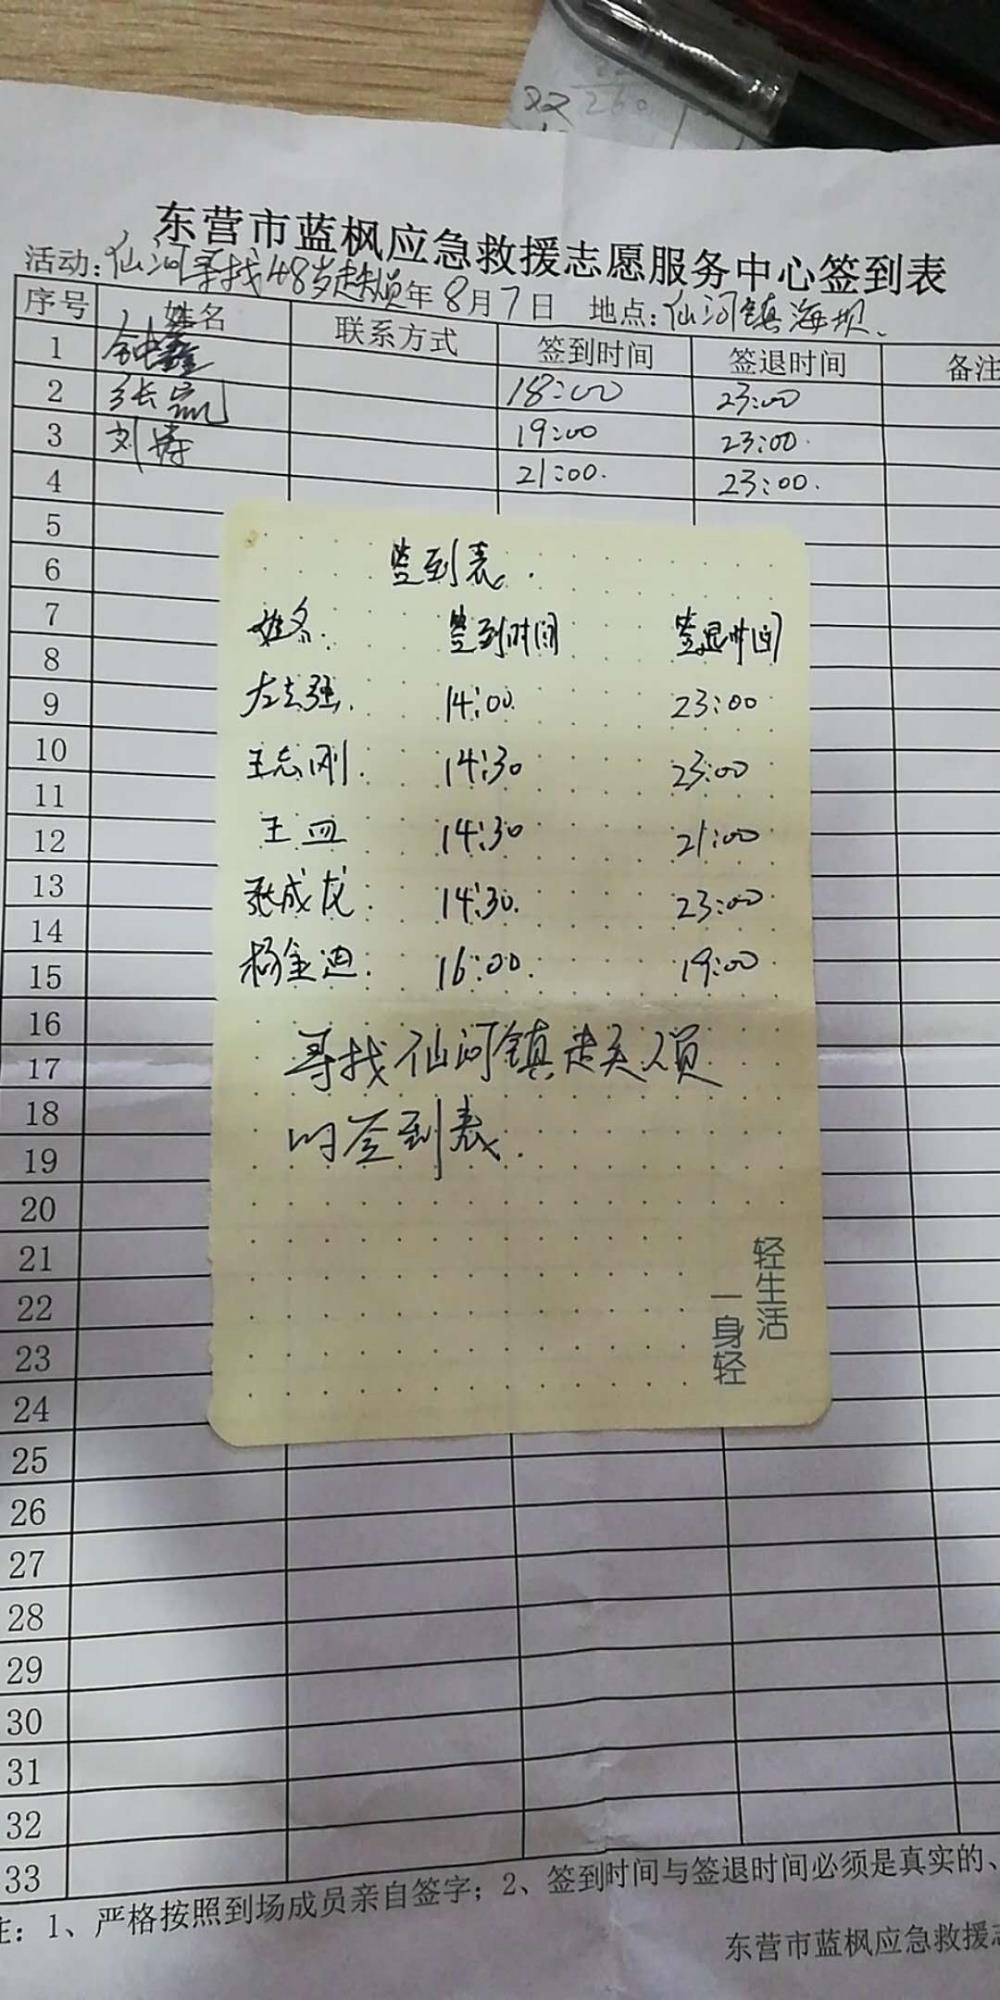 双 260
东营市蓝枫应急救援志愿服务中心签到表
活动:仙河寻找48岁走失人员 年8月7日 地点:仙河镇海坝.
序号 姓名 联系方式 签到时间 签退时间 备注
1 钟鑫
2 18:00 23:00
3 刘涛 19:00 23:00.
4 21:00. 23:00.
5
6
7
8
9
10
11
12
13
14
15
16
17
18
19
20
21
22
23
24
25
26
27
28
29
30
31
32
33
签到表.
姓名. 签到时间 签退时间
左志强. 14:00 23:00
王志刚. 14:30 23:00
王 14:30 21:00
张成龙. 14:30. 23:00
杨金迪. 16:00. 19:00
寻找仙河镇走失人员
的签到表.
轻生活
一身轻
注: 1、严格按照到场成员亲自签字; 2、签到时间与签退时间必须是真实的、
东营市蓝枫应急救援志